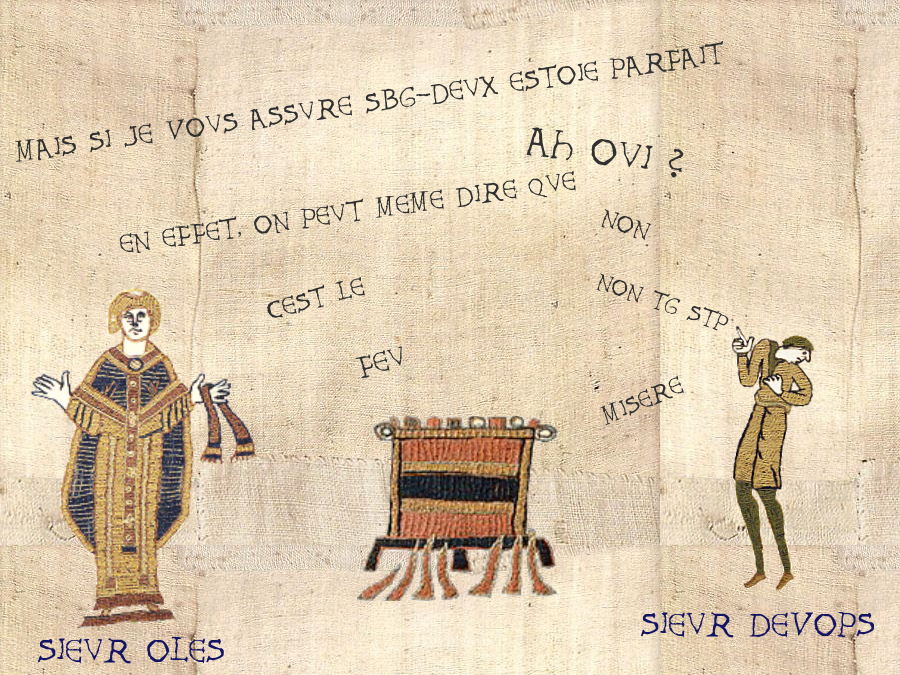 MAIS SI JE VOVS ASSVRE SBG-DEVX ESTOIE PARFAIT
AH OVI ?
EN EFFET, ON PEVT MEME DIRE QVE
NON
CEST LE
NON TG STP
FEV
MISERE
SIEVR OLES
SIEVR DEVOPS